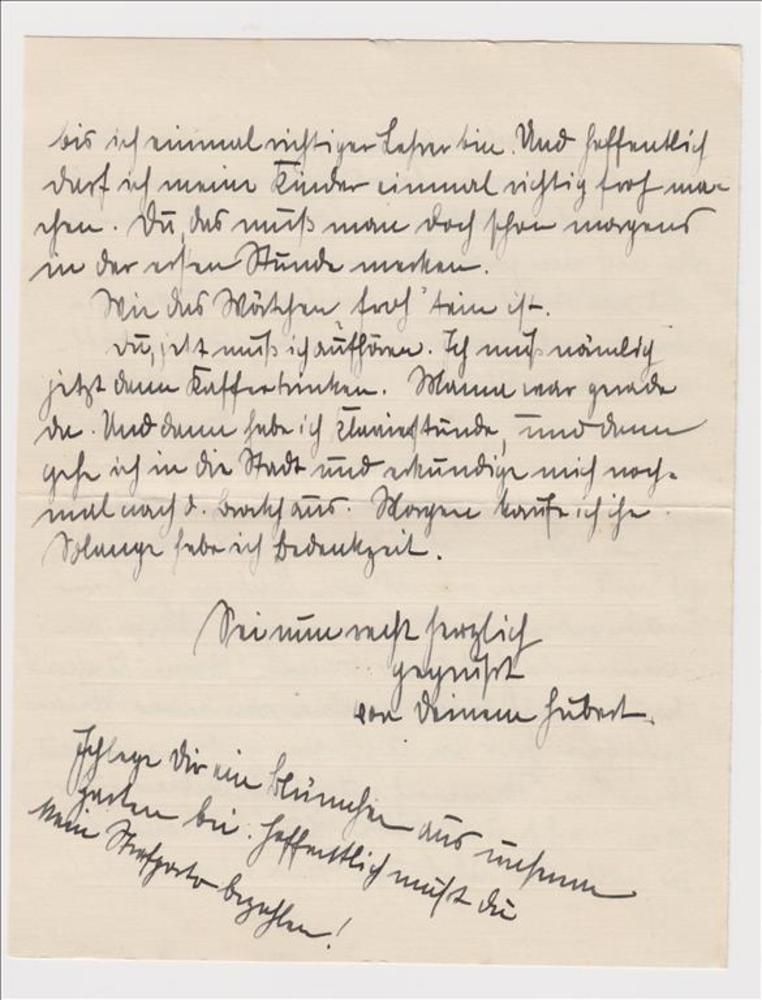 bis ich einmal richtiger Lehrer bin. Und hoffentlich
darf ich meine Kinder einmal richtig froh ma-
chen. Du, das muß man doch schon morgens
in der ersten Stunde merken.
Wie das Wörtchen froh sein ist.
Du, jetzt muß ich aufhören. Ich muß nämlich
jetzt dann Kaffeetrinken. Mama war gerade
da. Und dann habe ich Klavierstunde, und dann
gehe ich in die Stadt und erkundige mich noch-
mal nach d. Brockhaus. Morgen kaufe ich ihn.
Solange habe ich Bedenkzeit.
Sei nun recht herzlich
gegrüßt
von Deinem Hubert.
Ich lege Dir ein Blümchen aus unserem
Garten bei. Hoffentlich mußt Du
kein Strafporto bezahlen!